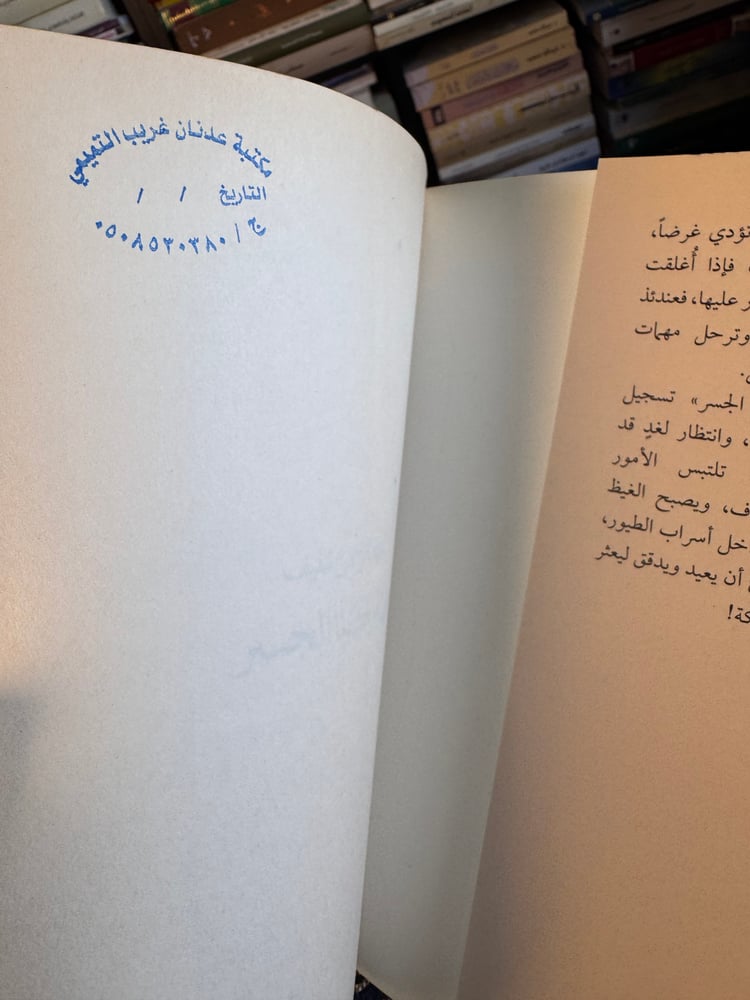 مكتبة عدنان غريب التميمي
التاريخ / /
ج / ٠٥٠٨٥٣٠٣٨٠
تؤدي غرضاً،
فإذا أُغلقت
عليها، فعندئذ
وترحل مهمات
الجسر» تسجيل
، وانتظار لغدٍ قد
تلتبس الأمور
ويصبح الغيظ
أسراب الطيور،
أن يعيد ويدقق ليعثر